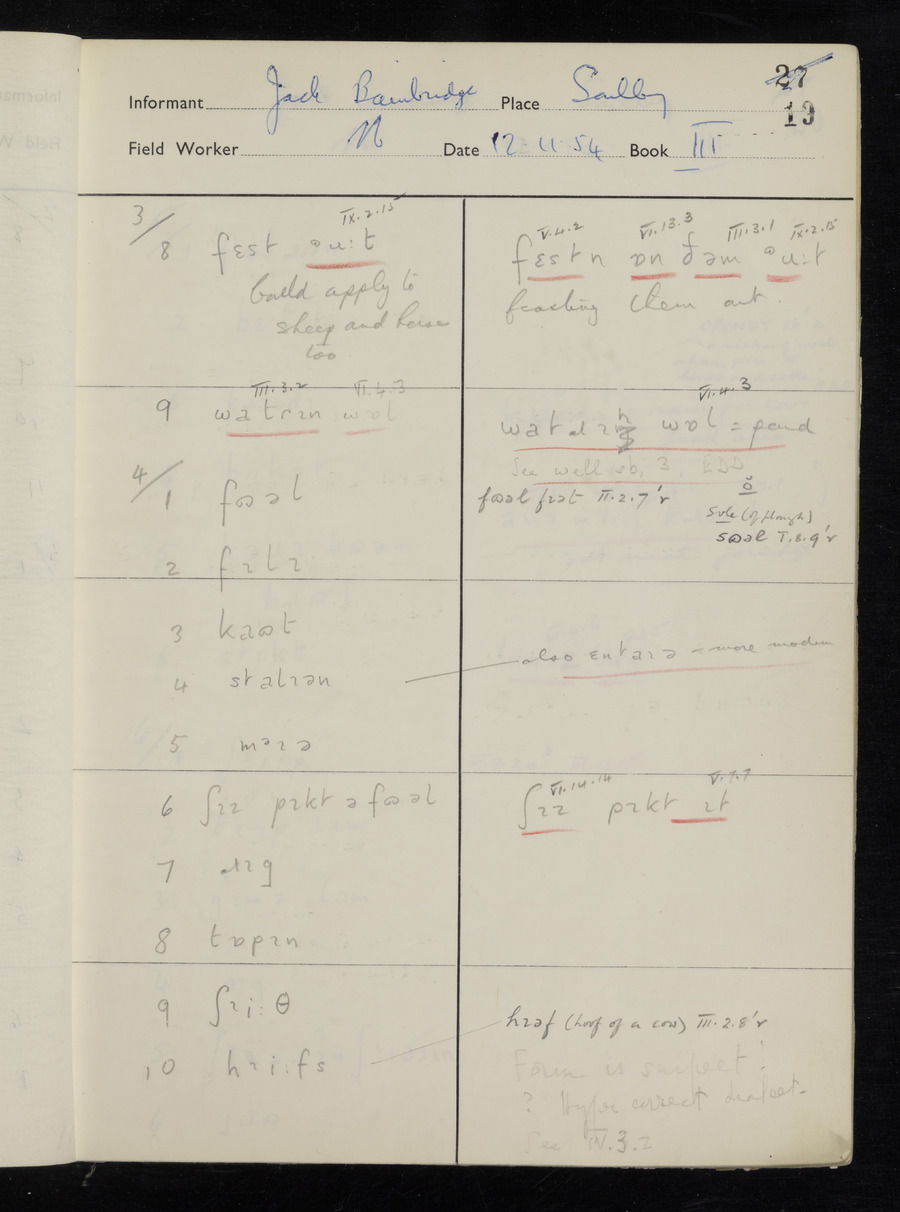 Informant Jack Bainbridge Place
27
19
Field Worker N Date 12-11-54 Book III
3/
IX.2.15
8 fɛst əu:t
Could apply to
sheep and horse
too
V.4.2 VI.13.3 III.3.1 IX.2.15
fɛstn ɒn ðəm əu:t
them out.
III.3.2 VI.4.3
9 wɒl
VI.4.3
wɒl = pond
See well sb. 3. EDD
4/
1 fɷəl
fɷəl fɪət II.2.7'r
ŏ
sole (of plough)
sɷəl I.8.9'r
2 fɪlɪ
3 kaɷt
4 stalɪən
also ɛntaɪə - more modern
5 mɛɪə
6 ʃɪɪ pɪkt ə fɷəl
VI.14.14 V.7.7
ʃɪɪ pɪkt ɪt
7
8 tɒpɪn
9 ʃɪi:θ
hɪəf (hoof of a cow) III.2.8'r
10 hɪi:fs
Form is suspect!
? Hyper correct dialect.
See IV.3.2